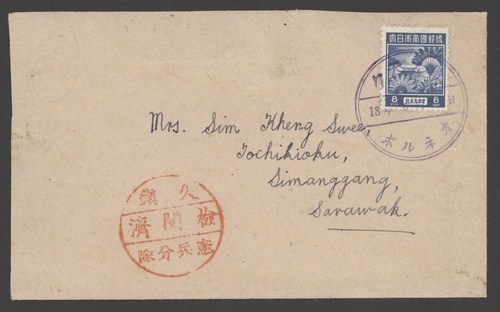 大日本帝國郵便
8 8
18
ボルネオ
Mrs. Sim Kheng Swee,
Tochihioku,
Simanggang,
Sarawak.
久鎮
檢閱濟
憲兵分隊